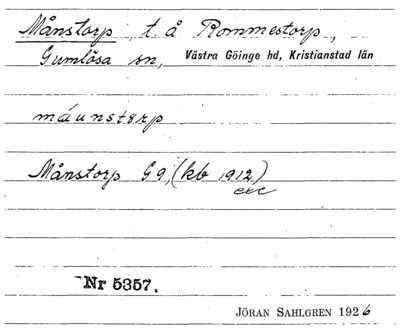 Månstorp t. å Rommestorp,
Gumlösa sn, Västra Göinge hd, Kristianstad län
máunstørp
Månstorp G9, (kb 1912)
etc
Nr 5357.
JÖRAN SAHLGREN 1926